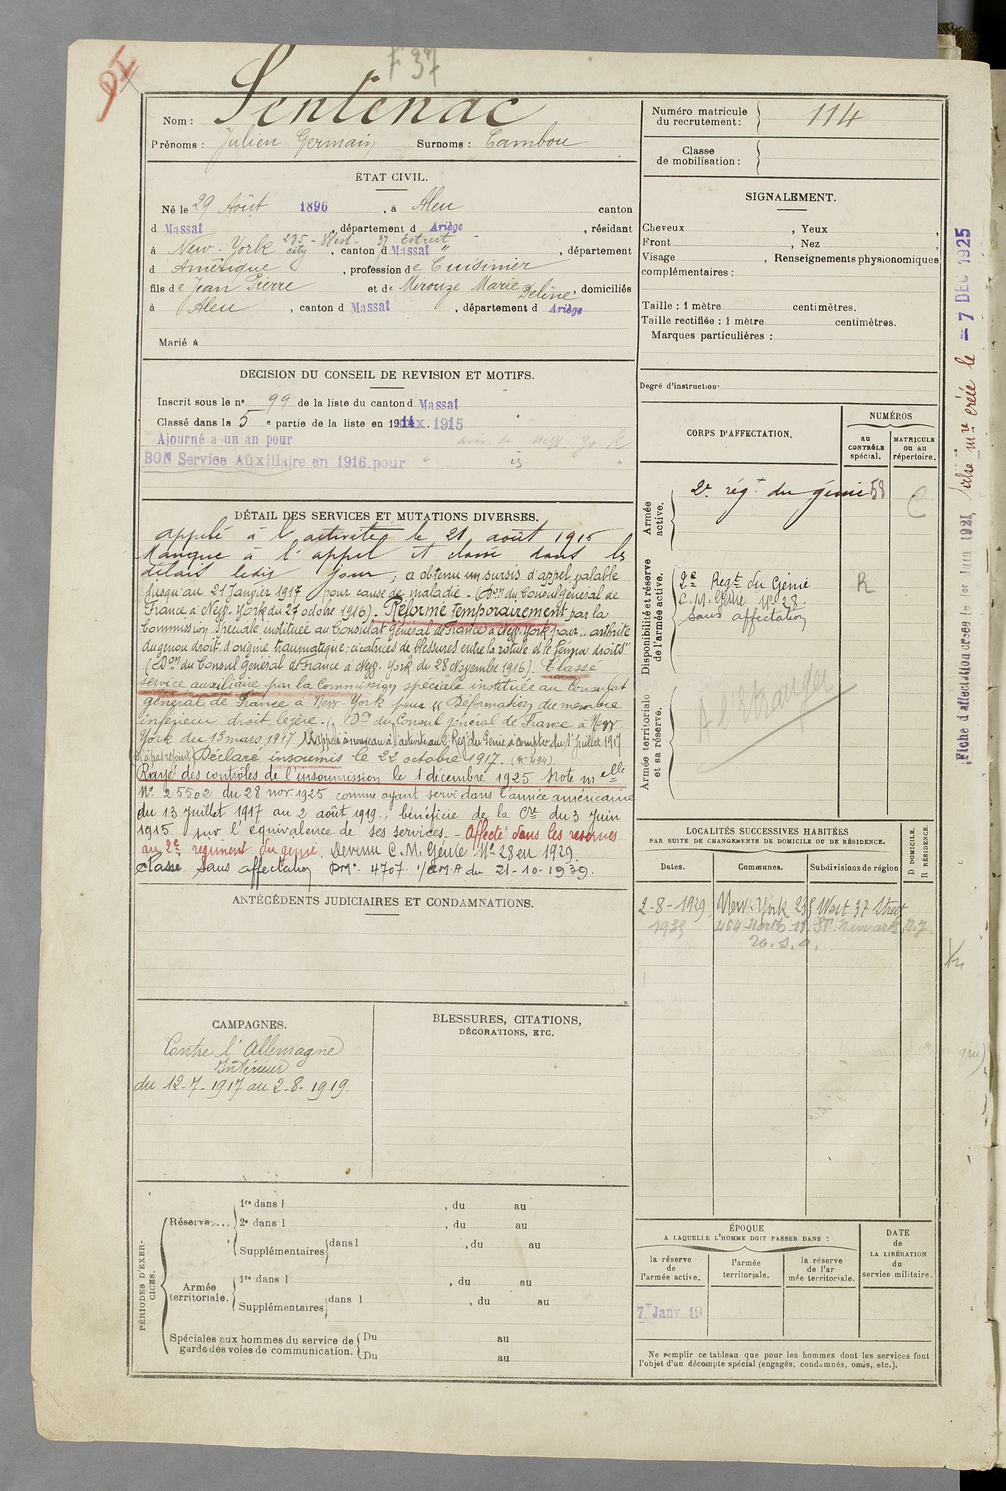 F 37
Nom : Sentenac
Prénoms : Julien Germain Surnoms : Tambou
ÉTAT CIVIL.
Né le 29 Août 1896, à Aleu canton
d Massat, département d Ariège, résidant
235 - West. 37 Estreet
à New-York city, canton d Massat ", département
d Amérique, profession de Cuisinier
fils de Jean Pierre et de Mirouze Marie Deline, domiciliés
à Aleu, canton d Massat, département d Ariège
Marié à
DÉCISION DU CONSEIL DE REVISION ET MOTIFS.
Inscrit sous le n° 99 de la liste du canton d Massat
Classé dans la 5 e partie de la liste en 1915
Ajourné a un an pour avis de New-York
BON Service Auxiliaire en 1916. pour " is "
DÉTAIL DES SERVICES ET MUTATIONS DIVERSES.
appelé à l'activité le 21 août 1916
Manque à l'appel et classé dans les
délais ledit jour, a obtenu un sursis d'appel valable
jusqu'au 21 Janvier 1917 pour cause de maladie. (Don du Consul Général de
France à New-York du 27 octobre 1916). Réformé temporairement par la
Commission Spéciale instituée au Consulat Général de France à New-York pour "arthrite
du genou droit. d'origine traumatique; cicatrices de blessures entre la rotule et le fémur droits"
(Don du Consul général de France à New-York du 28 Novembre 1916). Classé
service auxiliaire par la Commission spéciale instituée au Consulat
général de France à New-York pour "Déformation du membre
inférieur droit légère". Don du Consul général de France à New-
York du 13 mars 1917 Rappelé à nouveau à l'activité au 2e Reg. du Génie à compter du 1er Juillet 1917
n'a pas rejoint Déclaré insoumis le 22 octobre 1917. (N° 494).
Rayé des contrôles de l'insoumission le 1 décembre 1925 Note melle
N° 25502 du 28 nov. 1925 comme ayant servi dans l'armée américaine
du 13 Juillet 1917 au 2 août 1919, bénéficie de la Cre du 3 juin
1915 sur l'équivalence de ses services. - Affecté dans les réserves
au 2e régiment du génie. Devenu C.M. Génie N° 28 en 1929.
Classé Sans affectation DM. 4707. 1/EMA du 21-10-1939.
ANTÉCÉDENTS JUDICIAIRES ET CONDAMNATIONS.
CAMPAGNES.
Contre l'Allemagne
Intérieur
du 12-7-1917 au 2-8-1919.
BLESSURES, CITATIONS,
DÉCORATIONS, ETC.
PÉRIODES D'EXERCICES.
Réserve....
1re dans l , du au
2e dans l , du au
Supplémentaires dans l , du au
Armée territoriale.
1re dans l , du au
Supplémentaires dans l , du au
Spéciales aux hommes du service de garde des voies de communication.
Du au
Du au
Numéro matricule
du recrutement : 114
Classe
de mobilisation :
SIGNALEMENT.
Cheveux , Yeux ,
Front , Nez ,
Visage , Renseignements physionomiques
complémentaires :
Taille : 1 mètre centimètres.
Taille rectifiée : 1 mètre centimètres.
Marques particulières :
Degré d'instruction.
CORPS D'AFFECTATION.
NUMÉROS
AU CONTRÔLE spécial.
MATRICULE OU AU répertoire.
Armée active.
2e régt du génie 58 C
Disponibilité et réserve de l'armée active.
2e Regt du Génie R
C.M. Génie N° 28.
Sans affectation
Armée territoriale et sa réserve.
A l'Etranger
LOCALITÉS SUCCESSIVES HABITÉES
PAR SUITE DE CHANGEMENTS DE DOMICILE OU DE RÉSIDENCE.
D DOMICILE.
R RÉSIDENCE.
Dates. Communes. Subdivisions de région
2-8-1929 New-York 235 West 37 Street
1935 464 North 11. St. Newark N.J.
U.S.A.
ÉPOQUE
A LAQUELLE L'HOMME DOIT PASSER DANS :
la réserve de l'armée active.
l'armée territoriale.
la réserve de l'armée territoriale.
DATE de LA LIBÉRATION du service militaire.
7 Janv 19
Ne remplir ce tableau que pour les hommes dont les services font
l'objet d'un décompte spécial (engagés, condamnés, omis, etc.).
Fiche d'affectation créée le 1er Juin 1921, fiche mre créée le - 7 DEC 1925